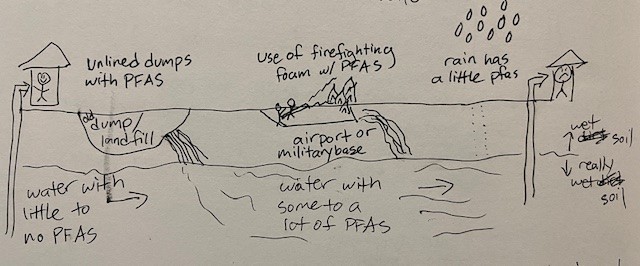 unlined dumps
with PFAS
use of firefighting
foam w/ PFAS
rain has
a little pfas
old dump/
landfill
airport or
military base
wet
soil
really
wet
soil
water with
little to
no PFAS
water with
some to a
lot of PFAS